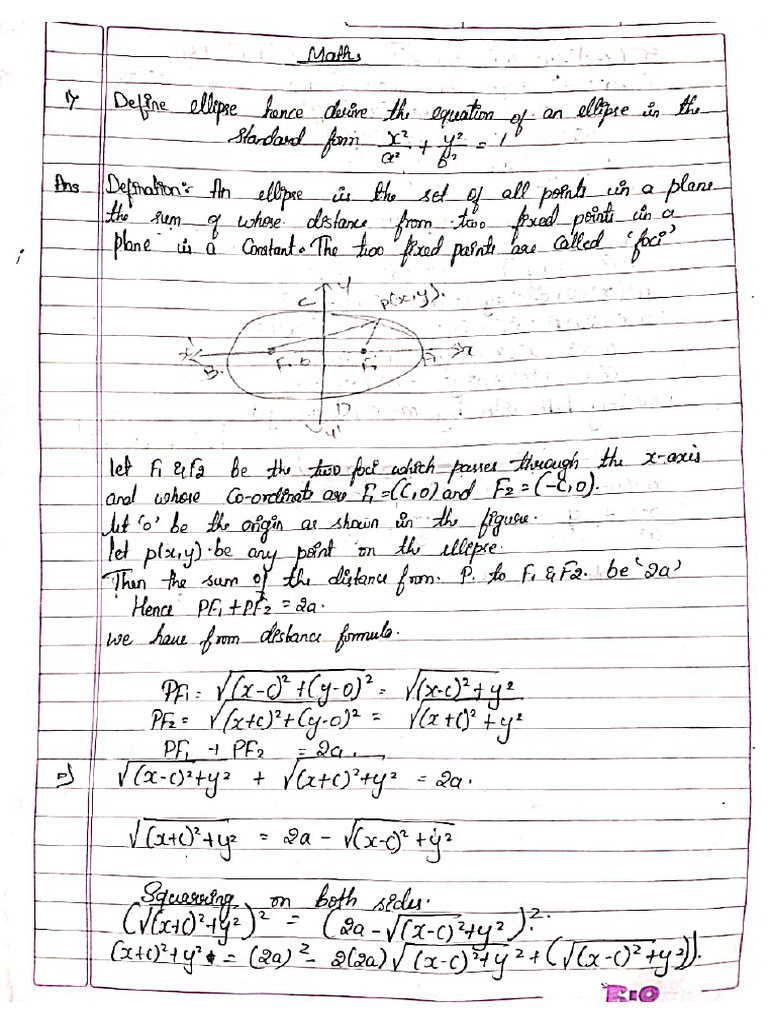 Maths
1) Define ellipse hence derive the equation of an ellipse in the
standard form x²/a² + y²/b² = 1
Ans Defination:- An ellipse is the set of all points in a plane
the sum of whose distance from two fixed points in a
plane is a Constant. The two fixed points are called 'foci'
C Y P(x,y).
x' B. F₁ O F₂ x
D
y'
let F₁ & F2 be the two foci which passes through the x-axis
and whose Co-ordinate are F₁=(C,0) and F₂=(-C,0).
let 'o' be the origin as shown in the figure.
let p(x,y) be any point on the ellipse.
Then the sum of the distance from P. to F₁ & F2. be '2a'
Hence PF₁+PF₂ = 2a.
we have from distance formula.
PF₁ = √(x-c)²+(y-0)² = √(x-c)²+y²
PF₂ = √(x+c)²+(y-0)² = √(x+c)²+y²
PF₁ + PF₂ = 2a.
⇒ √(x-c)²+y² + √(x+c)²+y² = 2a.
√(x+c)²+y² = 2a - √(x-c)²+y²
Squarring on both sides.
(√(x+c)²+y²)² = (2a-√(x-c)²+y²)².
(x+c)²+y² = (2a)² - 2(2a)√(x-c)²+y² + (√(x-c)²+y²)².